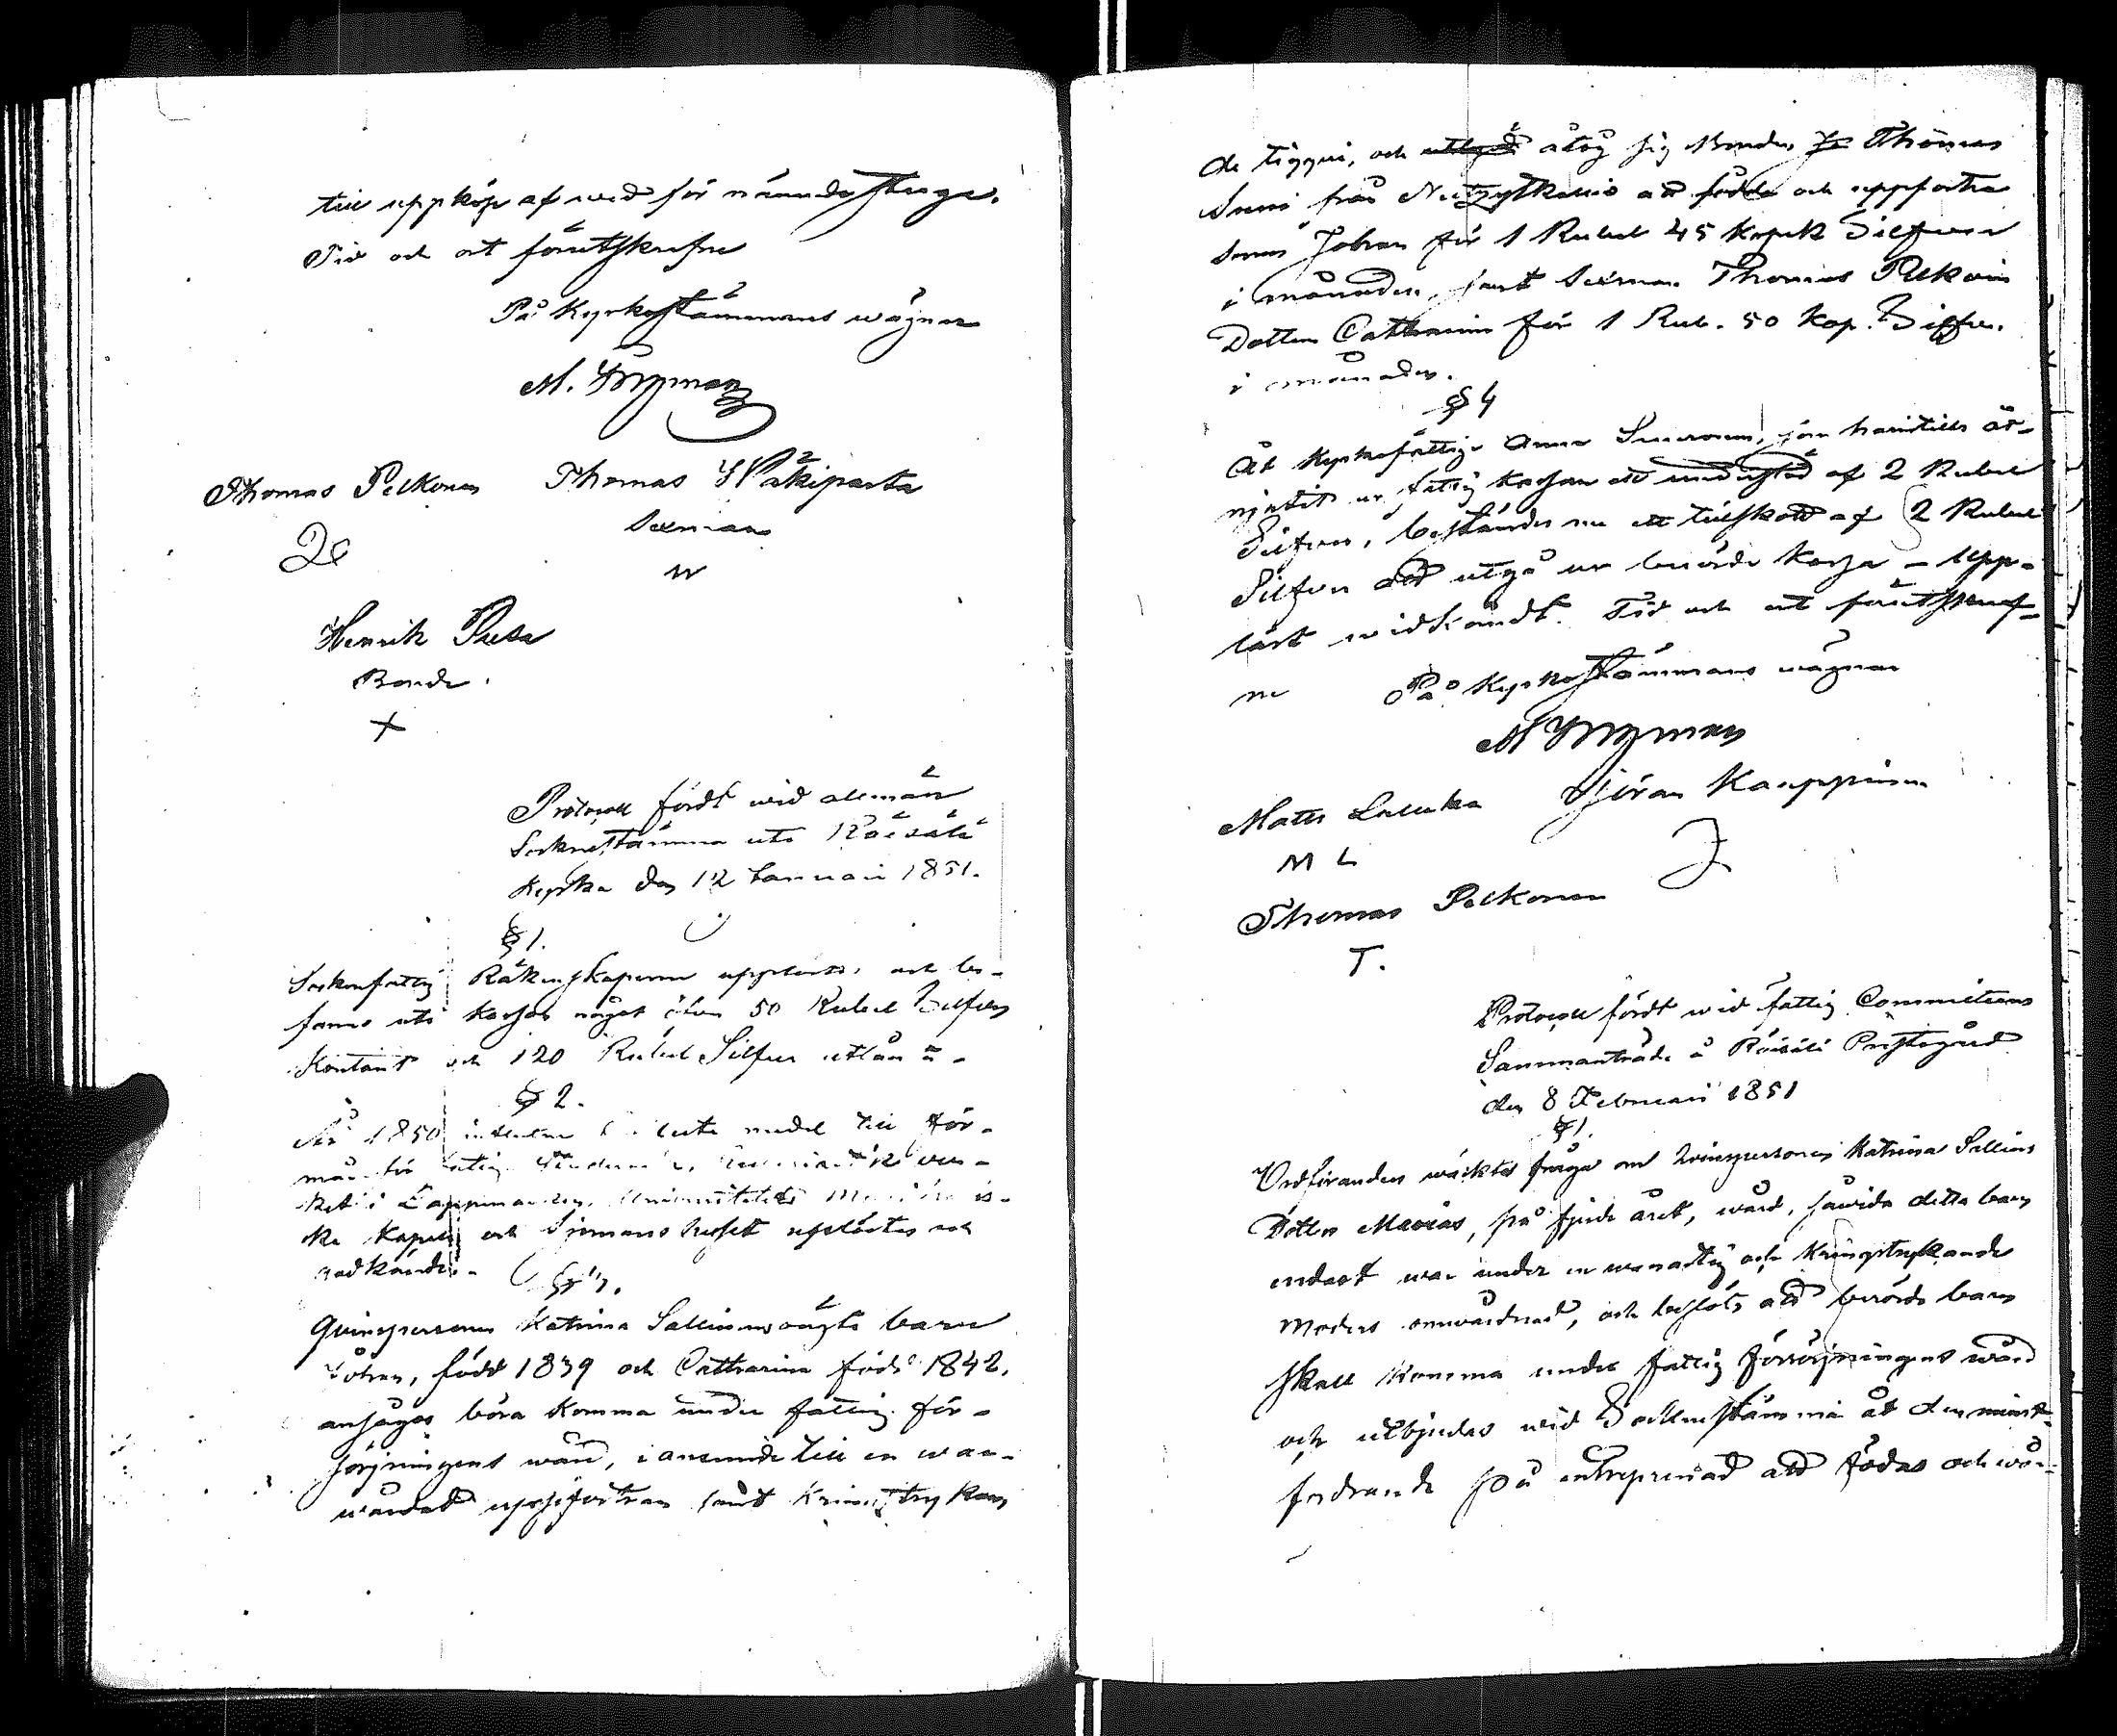 till uppköp af wed för nämnda stuga.
Tid och ort förutskrefne
På Kyrkostämmans wägnar
M. Forsman
Thomas Pelkonen Thomas Wäkiparta
Sexman
W
Henrik Pusa
Bonde.
X
Protocoll fördt wid allmän
Socknestämma uti Räisälä
Kyrka den 12 Januari 1851.
§ 1.
Sockenfattig Räkenskaperne upplästes och be-
fanns uti kassan något öfver 50 Rubel Silfver
Kontant och 120 Rubel Silfver utlån
§ 2.
År 1850 medel till för-
mån för fattig
ket i Universitetets
ska Kapell och Sjömanshuset upplästes och
godkändes.
§ 3.
Qvinspersonen Katrina Sallinens oäkta barn
Johan, född 1839 och Catharina född 1842.
ansågos böra komma under fattig för-
sörjningens wård, i anseende till en wan-
wårdad uppfostran samt Kringstrykan
de tiggeri, och åtog sig Bonden Thomas
från att föda och uppfostra
sonen Johan för 1 Rubel 45 Kopek Silfver
i månaden, samt Sexman Thomas Pelkoin
Dottren Catharina för 1 Rub. 50 Kop. Silfver.
i månaden.
§ 4
Åt Kyrkofattige Anna som härintills åt-
njutit ur fattig kassan ett understöd af 2 Rubel
Silfver, bestämdes nu ett tillskott af 2 Rubel
Silfver att utgå ur berörde kassa - Upp-
läst widkändt. Tid och ort förutskref-
ne På Kyrkostämmans wägnar
M Forsman
Matts Lalukka Göran Kauppinen
M L
Thomas Pelkonen
T.
Protocoll fördt wid fattig Committeens
Sammanträde å Räisälä Prestegård
den 8 Februari 1851
§ 1.
Ordföranden wäckte fråga om Qvinspersonen Katrina Sallins
Dotter Marias, på fjerde året, wård, såwida detta barn
endast war under en wanartig och Kringstrykande
Moders omwårdnad, och beslöts att berörde barn
skall komma under fattig försörjningens wård
och utbjudas wid Sockenstämma åt den minst-
fordrande på entreprenad att födas och wår-